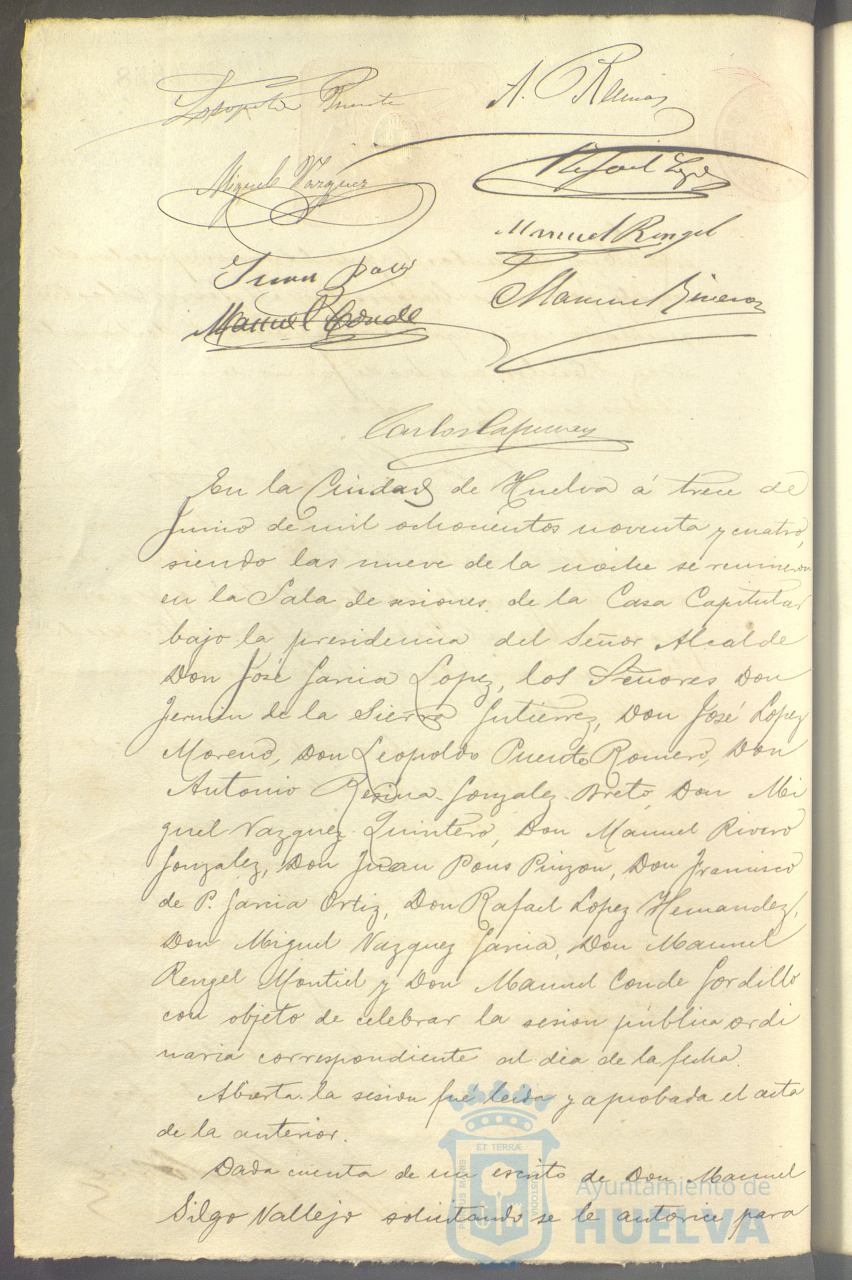 Leopoldo Puente
A. Resina
Miguel Vazquez
Rafael Lopez
Manuel Rengel
Juan Pons
Manuel Rivero
Manuel Conde
Carlos
En la Ciudad de Huelva á trece de
Junio de mil ochocientos noventa y cuatro,
siendo las nueve de la noche se reunieron
en la Sala de sesiones de la Casa Capitular
bajo la presidencia del Señor Alcalde
Don José Garcia Lopez, los Señores Don
Fermin de la Sierra Gutierrez, Don José Lopez
Moreno, Don Leopoldo Puente Romero, Don
Antonio Resina Gonzalez Breto, Don Mi
guel Vazquez Quintero, Don Manuel Rivero
Gonzalez, Don Juan Pons Pinzon, Don Francisco
de P. Garcia Ortiz, Don Rafael Lopez Hernandez,
Don Miguel Vazquez Garcia, Don Manuel
Rengel Montiel y Don Manuel Conde Gordillo
con objeto de celebrar la sesion pública ordi
naria correspondiente al dia de la fecha.
Abierta la sesion fué leida y aprobada el acta
de la anterior.
Dada cuenta de un escrito de Don Manuel
Silgo Vallejo solicitando se le autorice para
ET TERRÆ
Ayuntamiento de
HUELVA